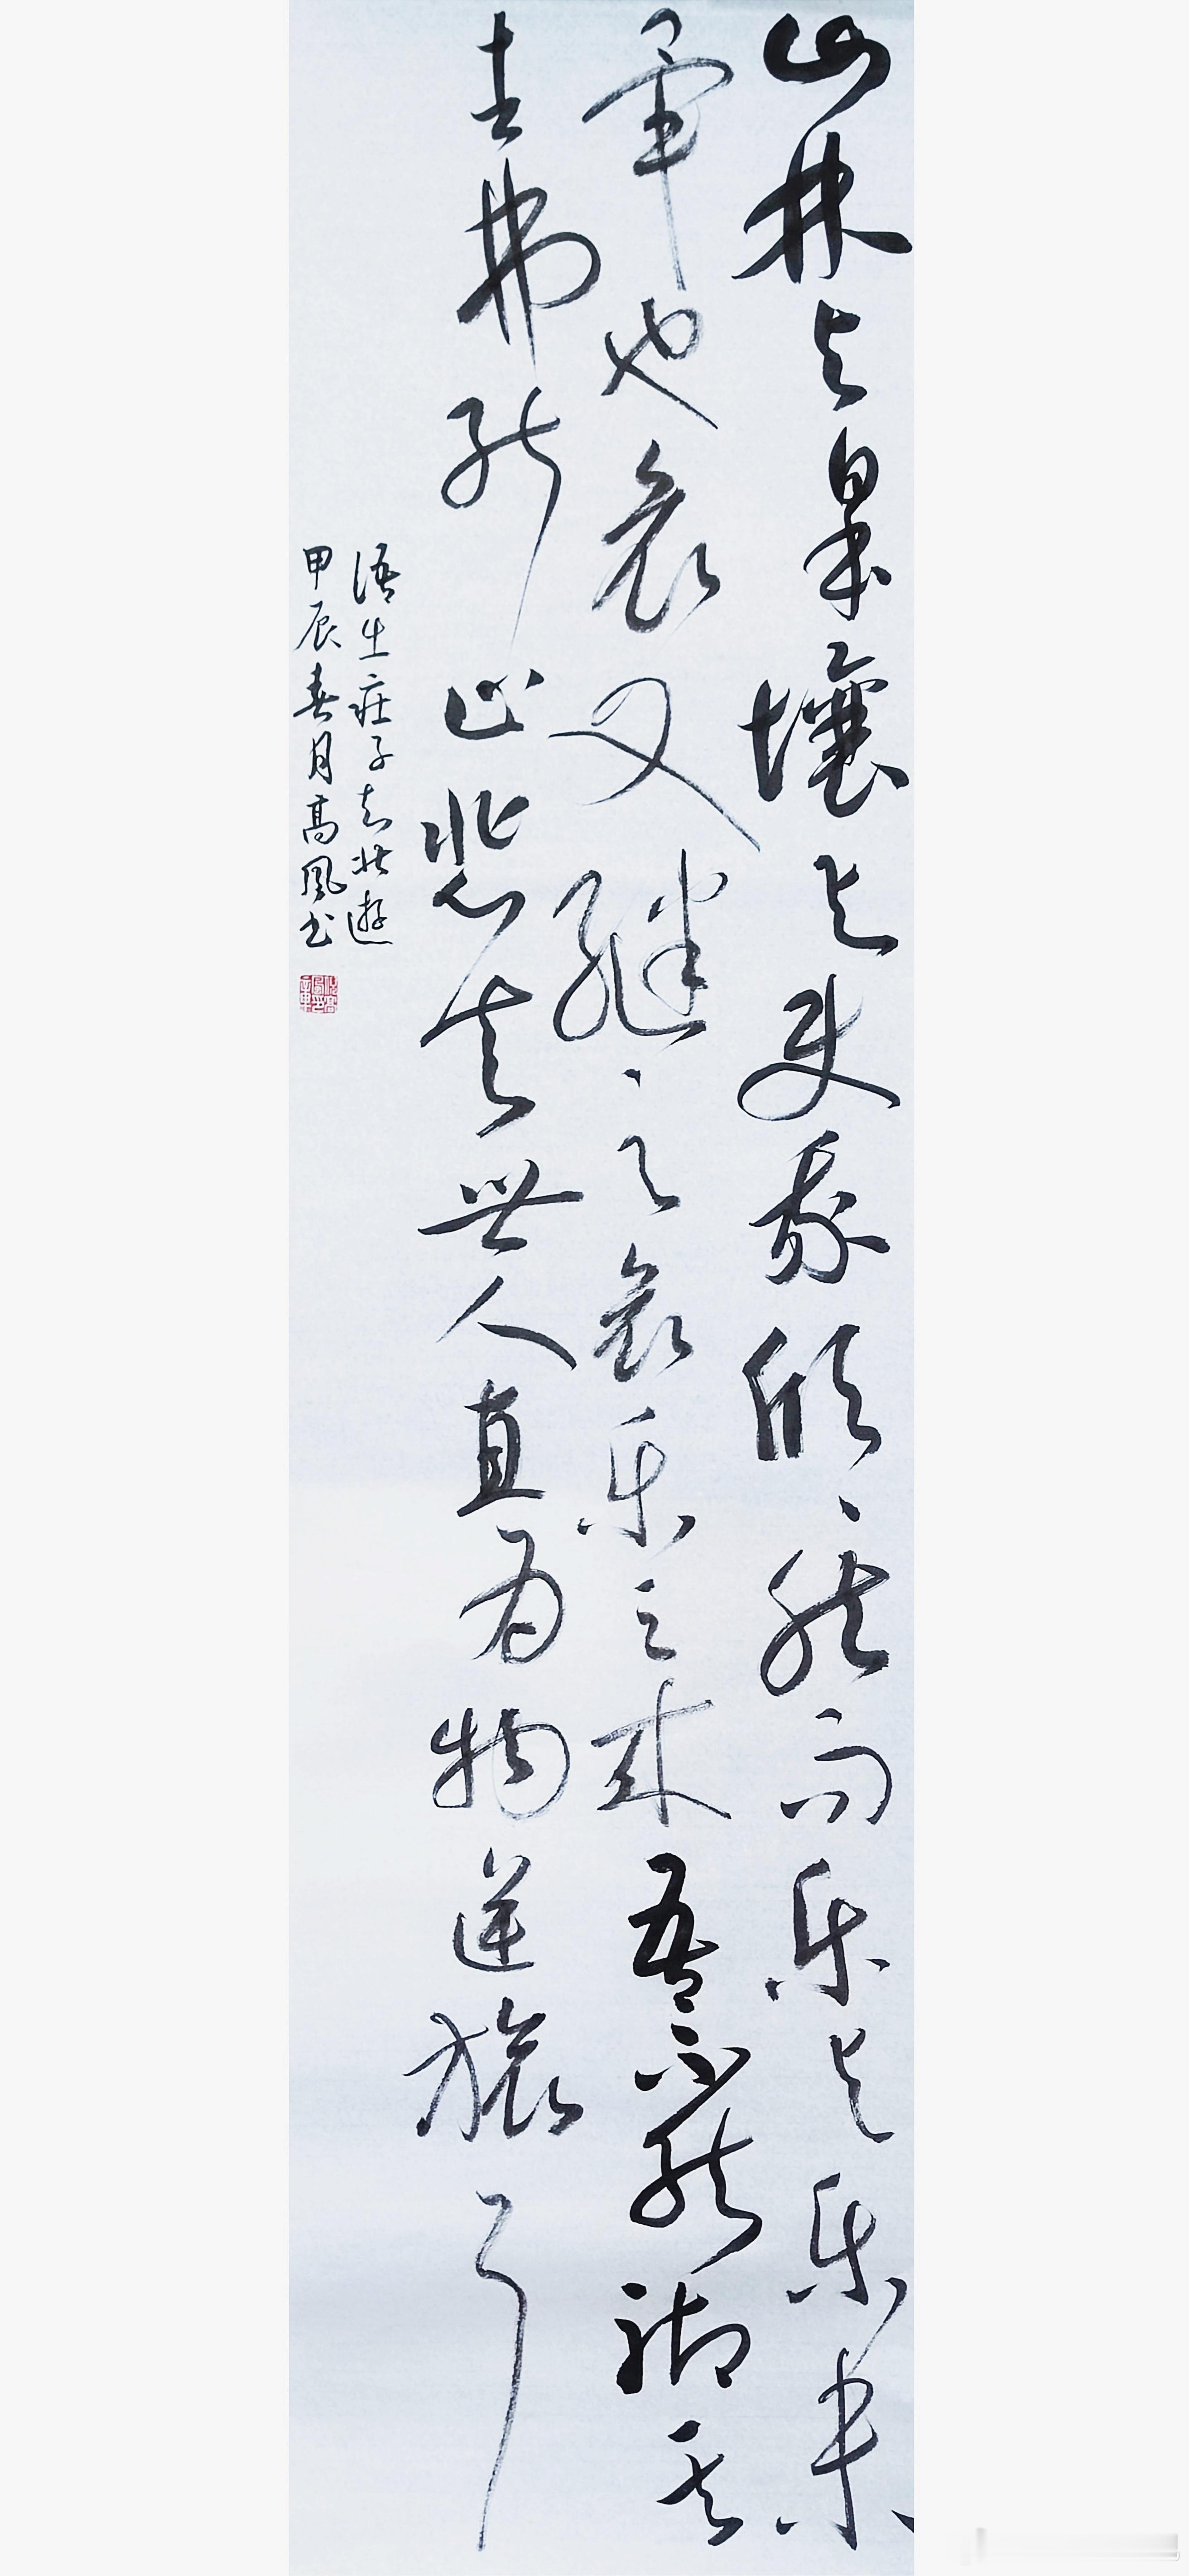 山林与皋壤与使我欣〻然而乐与乐未
毕也哀又继〻之哀乐之来吾不能御其
去弗能止悲夫世人直为物逆旅耳
语生庄子知北遊
甲辰春月高风书